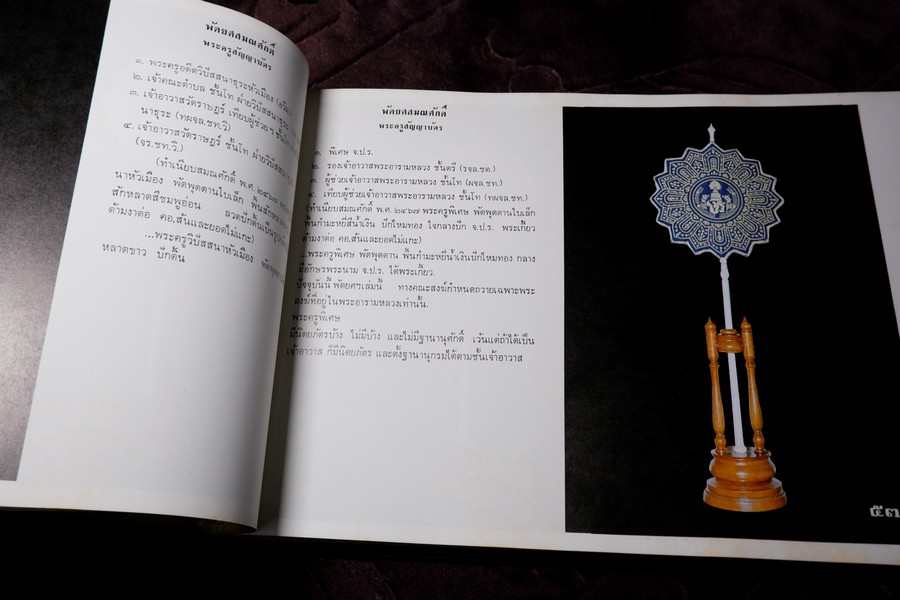 พัดยศสมณศักดิ์
พระครูสัญญาบัตร
๑. พระครูอดีตวิปัสสนาธุระหัวเมือง
๒. เจ้าคณะตำบล ชั้นโท ฝ่ายวิปัสสนาธุระ
๓. เจ้าอาวาสวัดราษฎร์ เทียบผู้ช่วยฯ ชั้นโท
นาธุระ (ทผจล.ชท.วิ)
๔. เจ้าอาวาสวัดราษฎร์ ชั้นโท ฝ่ายวิปัสสนาธุระ
(จร.ชท.วิ.)
(ทำเนียบสมณศักดิ์ พ.ศ. ๒๔๖๗
นาหัวเมือง พัดพุดตานใบเล็ก พื้นสักหลาด
สักหลาดสีชมพูอ่อน ลวดปักดิ้นเป็น
ด้ามงาต่อ คอ,สันและยอดไม้แกะ)
...พระครูวิปัสสนาหัวเมือง
หลาดขาว ปักดิ้น
พัดยศสมณศักดิ์
พระครูสัญญาบัตร
๑. พิเศษ จ.ป.ร.
๒. รองเจ้าอาวาสพระอารามหลวง ชั้นตรี (รจล.ชต.)
๓. ผู้ช่วยเจ้าอาวาสพระอารามหลวง ชั้นโท (ผจล.ชท.)
๔. เทียบผู้ช่วยเจ้าอาวาสพระอารามหลวง ชั้นโท (ทผจล.ชท.)
(ทำเนียบสมณศักดิ์ พ.ศ. ๒๔๖๗ พระครูพิเศษ พัดพุดตานใบเล็ก
พื้นกำมะหยี่สีน้ำเงิน ปักไหมทอง ใจกลางปัก จ.ป.ร. พระเกี้ยว
ด้ามงาต่อ คอ,สันและยอดไม้แกะ)
...พระครูพิเศษ พัดพุดตาน พื้นกำมะหยี่น้ำเงินปักไหมทอง กลาง
มีอักษรพระนาม จ.ป.ร. ใต้พระเกี้ยว.
ปัจจุบันนี้ พัดยศฯเล่มนี้ ทางคณะสงฆ์กำหนดถวายเฉพาะพระ
สงฆ์ที่อยู่ในพระอารามหลวงเท่านั้น.
พระครูพิเศษ
มีนิตยภัตรบ้าง ไม่มีบ้าง และไม่มีฐานานุศักดิ์ เว้นแต่ถ้าได้เป็น
เจ้าอาวาส ก็มีนิตยภัตร และตั้งฐานานุกรมได้ตามชั้นเจ้าอาวาส
๕๗